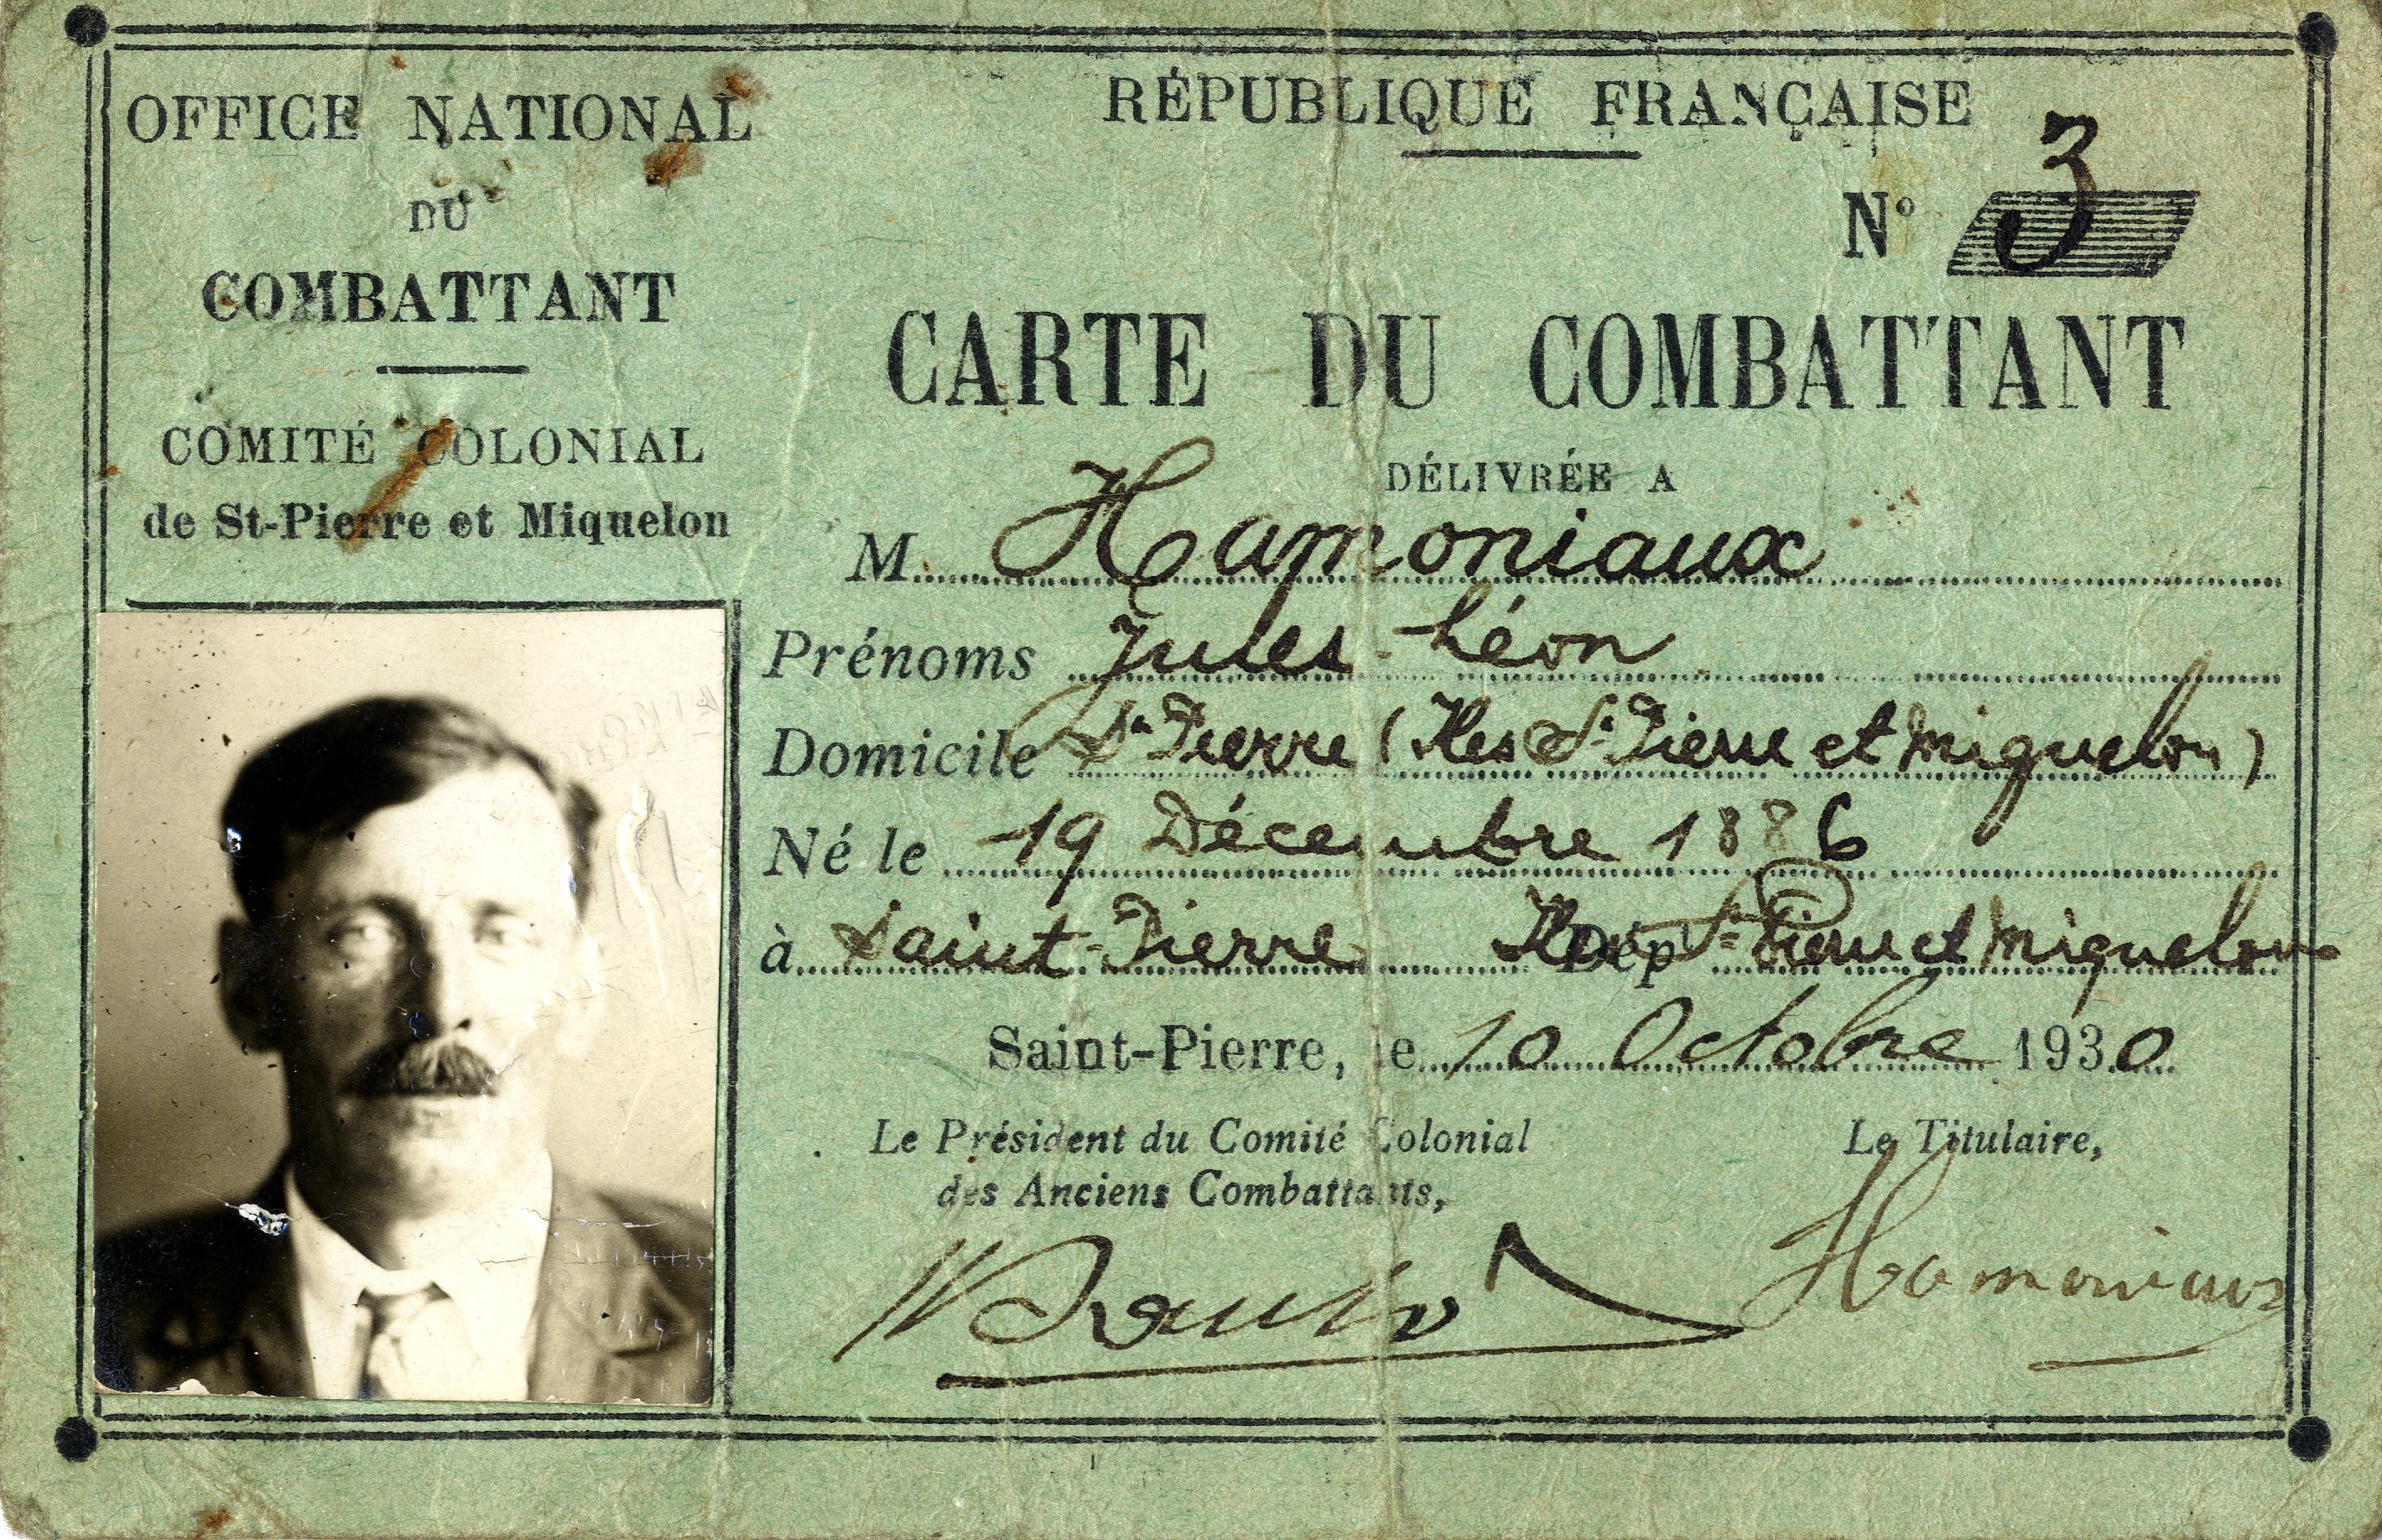 OFFICE NATIONAL
DU
COMBATTANT
COMITÉ COLONIAL
de St-Pierre et Miquelon
RÉPUBLIQUE FRANÇAISE
N° 3
CARTE DU COMBATTANT
DÉLIVRÉE A
M. Hamoniaux
Prénoms Jules-Léon
Domicile St Pierre (Iles St Pierre et Miquelon)
Né le 19 Décembre 1886
à Saint-Pierre Iles Dép St Pierre et Miquelon
Saint-Pierre, le 10 Octobre 1930
Le Président du Comité Colonial
des Anciens Combattants,
Le Titulaire,
Hamoniaux